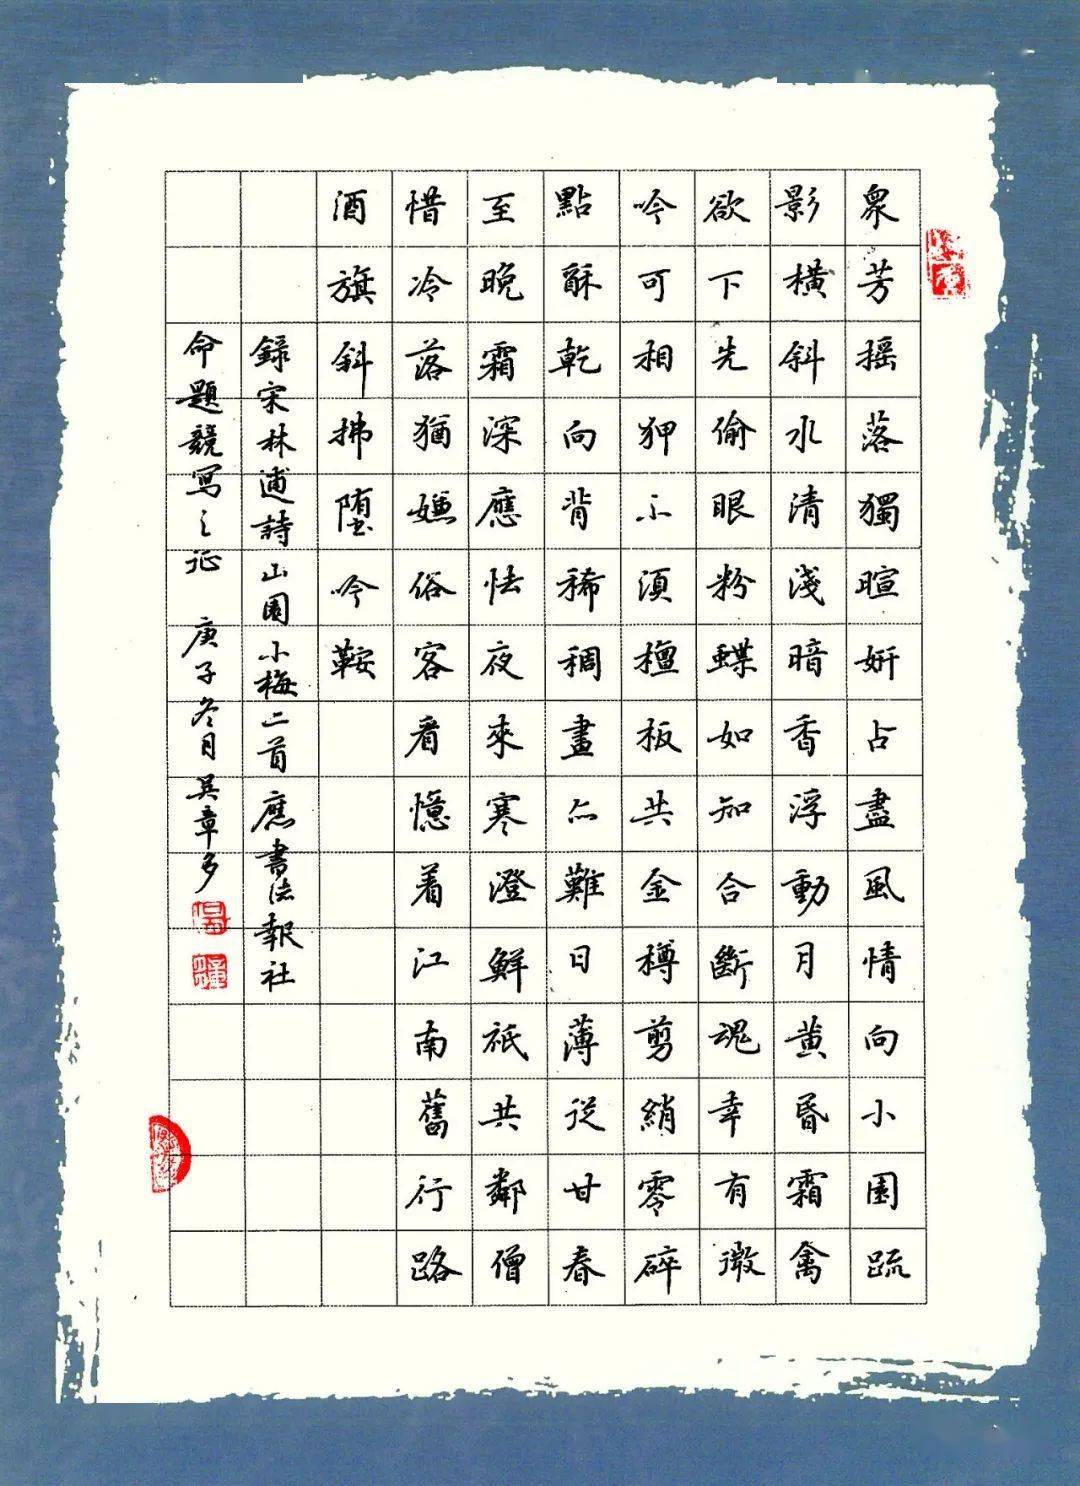 衆芳摇落獨暄妍占盡風情向小園疏
影橫斜水清淺暗香浮動月黃昏霜禽
欲下先偷眼粉蝶如知合斷魂幸有微
吟可相狎不須檀板共金樽剪綃零碎
點酥乾向背稀稠畫亦難日薄從甘春
至晚霜深應怯夜來寒澄鮮祇共鄰僧
惜冷落猶嫌俗客看憶着江南舊行路
酒旗斜拂墮吟鞍
錄宋林逋詩山園小梅二首 應書法報社
命題競寫之征 庚子冬月吳章多